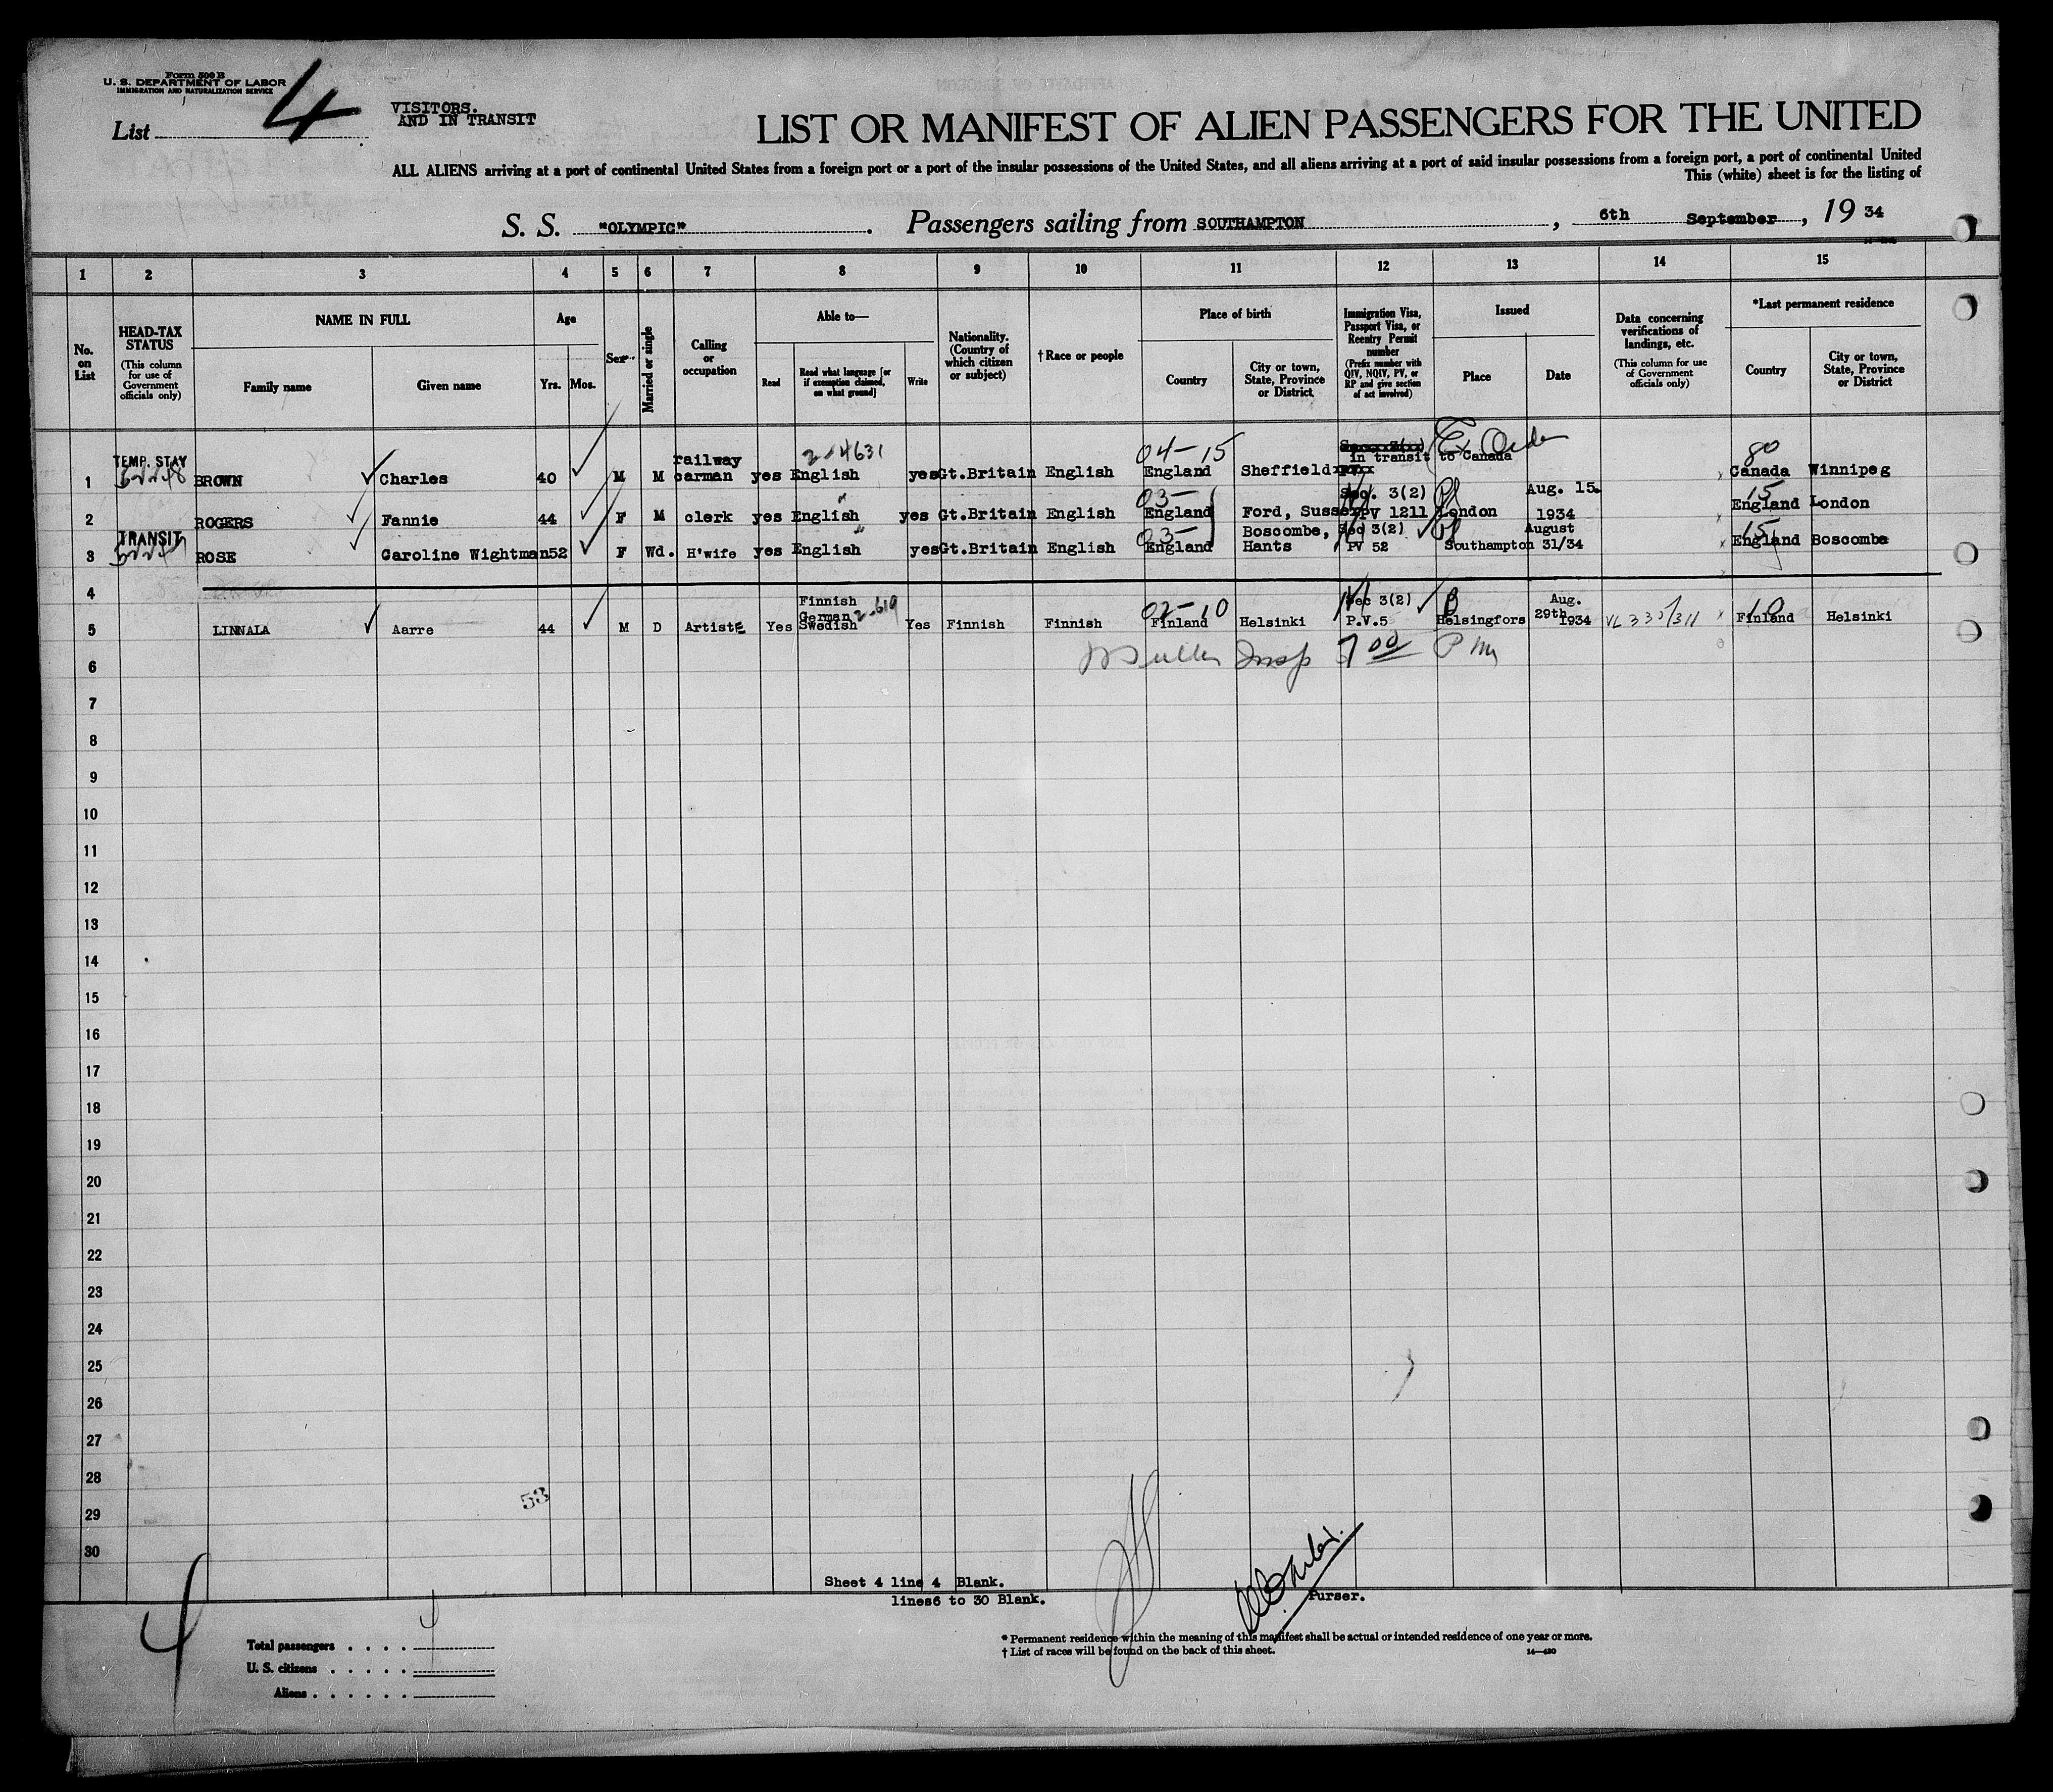 Form 500 B
U. S. DEPARTMENT OF LABOR
IMMIGRATION AND NATURALIZATION SERVICE
List 4
VISITORS.
AND IN TRANSIT
LIST OR MANIFEST OF ALIEN PASSENGERS FOR THE UNITED
ALL ALIENS arriving at a port of continental United States from a foreign port or a port of the insular possessions of the United States, and all aliens arriving at a port of said insular possessions from a foreign port, a port of continental United
This (white) sheet is for the listing of
S. S. "OLYMPIC". Passengers sailing from SOUTHAMPTON, 6th September, 19 34
1 2 3 4 5 6 7 8 9 10 11 12 13 14 15
No. on List
HEAD-TAX STATUS
(This column for use of Government officials only)
NAME IN FULL
Family name
Given name
Age
Yrs. Mos.
Sex
Married or single
Calling or occupation
Able to—
Read
Read what language [or if exemption claimed, on what ground]
Write
Nationality. (Country of which citizen or subject)
†Race or people
Place of birth
Country
City or town, State, Province or District
Immigration Visa, Passport Visa, or Reentry Permit number
(Prefix number with QIV, NQIV, PV, or RP and give section of act involved)
Issued
Place
Date
Data concerning verifications of landings, etc.
(This column for use of Government officials only)
*Last permanent residence
Country
City or town, State, Province or District
2-4631 04-15 Ex Order 80
1 TEMP. STAY BROWN Charles 40 M M railway carman yes English yes Gt.Britain English England Sheffield in transit to Canada Canada Winnipeg
03- 15
2 ROGERS Fannie 44 F M clerk yes English " yes Gt.Britain English England Ford, Sussex Sec. 3(2) PV 1211 London Aug. 15. 1934 England London
03- 15
3 TRANSIT ROSE Caroline Wightman 52 F Wd. H'wife yes English " yes Gt.Britain English England Boscombe, Hants Sec 3(2) PV 52 Southampton August 31/34 England Boscombe
4
02-10 10
5 LINNALA Aarre 44 M D Artiste Yes Finnish German Swedish 2-619 Yes Finnish Finnish Finland Helsinki Sec 3(2) P.V.5 Helsingfors Aug. 29th 1934 Finland Helsinki
6 Insp 7 00 P M
7
8
9
10
11
12
13
14
15
16
17
18
19
20
21
22
23
24
25
26
27
28
29
30
53
Sheet 4 line 4 Blank.
lines6 to 30 Blank.
Purser.
4
Total passengers . . . . 4
U. S. citizens . . . . .
Aliens . . . . . .
* Permanent residence within the meaning of this manifest shall be actual or intended residence of one year or more.
† List of races will be found on the back of this sheet.
14—430